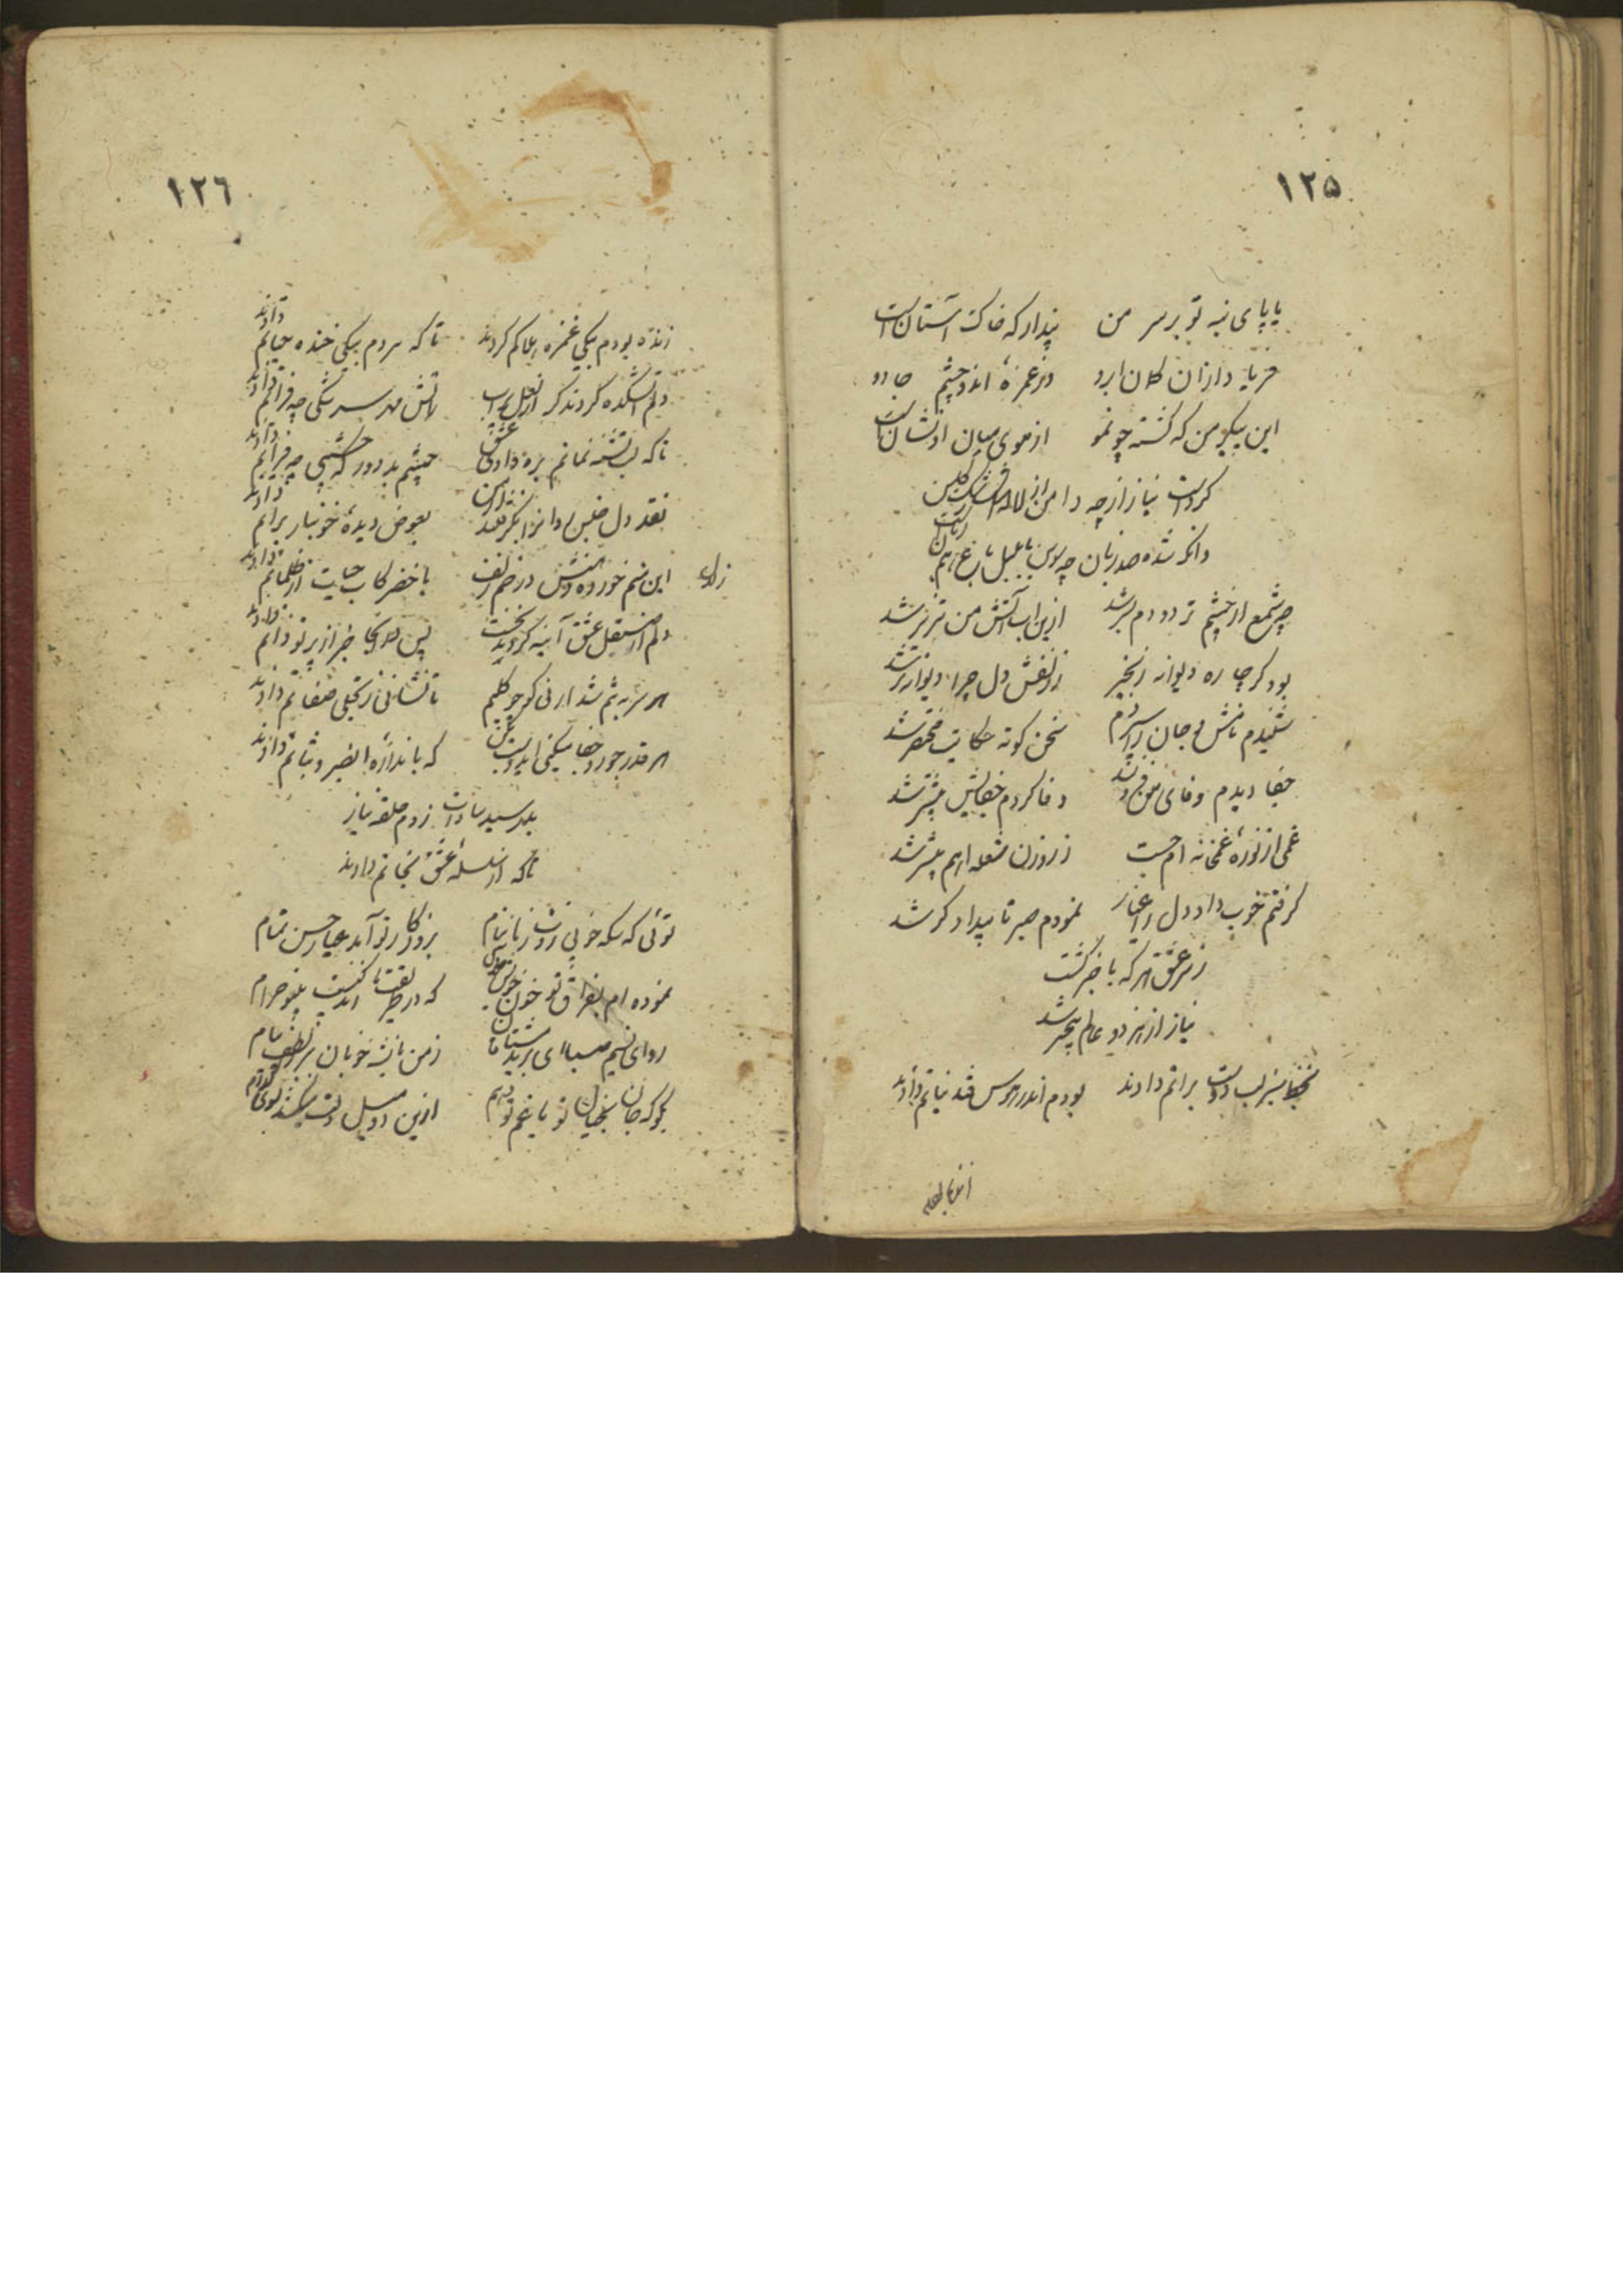 ١٢۵
یا پای نه تو بر سر من پندار که خاک آستان است
فریاد از آن کمان ابرو وز غمزهٔ آندو چشم جادو
این پیکر من که گشته چو مو از موی میان او نشان است
کرد است نیاز از چه دامن از لاله اشک رشک گلشن
وانکه شده صد زبان چه سوسن با بلبل باغ همزبان است
چه شمع از چشم تر دودم بسر شد ازین آب آتش من تیزتر شد
بود گر چاره دیوانه زنجیر ز زلفش دل چرا دیوانه‌تر شد
شنیدم نامش و جان را سپردم سخن کوته حکایت مختصر شد
جفا دیدم وفای من فزون شد وفا کردم جفایش بیشتر شد
غمی از غمخانه ام جست ز روزن شعله ارهم بیشتر شد
گرفتم خوب داد دل ز اغیار نمودم صبر تا بیدادگر شد
ز سر عشق هر که با خبر گشت
نیاز از هر دو عالم بیخبر شد
بخط سبز لب دوست براتم دادند بودم اندر هوس قند نباتم دادند
١٢٦
زنده بودم بیکی غمزه هلاکم کردند تا که مردم بیکی خنده حیاتم دادند
دلم آتشکده کردند گر از لعل پر آب ز آتش مهر سرشکی چه فراتم دادند
تا که لب تشنه نمانم بره وادی عشق چشم بد دور که چشمی چه فراتم دادند
نقد دل بعوض دیدهٔ خونبار براتم دادند
این منم خورده می دوش در خم زلف یا خضر کاب حیات از ظلماتم دادند
دلم از صیقل عشق آینه گردید نخست پس در آنجا خبر از پرتو ذاتم دادند
هر سر مو بتنم شد ارنی گو چو کلیم تا نشانی ز تجلی صفاتم دادند
هر قدر جور و جفا میکنی ایدوست بکن که باندازهٔ آن صبر و ثباتم دادند
بدر سید سادات زدم حلقه نیاز
تا که از سلسلهٔ عشق نجاتم دادند
توئی که سکه خوبی زدت زمانه بنام بروزگار تو آمد عیار حسن تمام
نموده ام بفراق تو خون خویش حلال که در طریقت ما زندگیست بیتو حرام
رو ای نسیم صبا ای برید مشتاقان ز من بشه خوبان ببر ز لطف پیام
بگو که جان بخیال تو یا غم تو دهم ازین دو میل دلت میکشد بسوی کدام